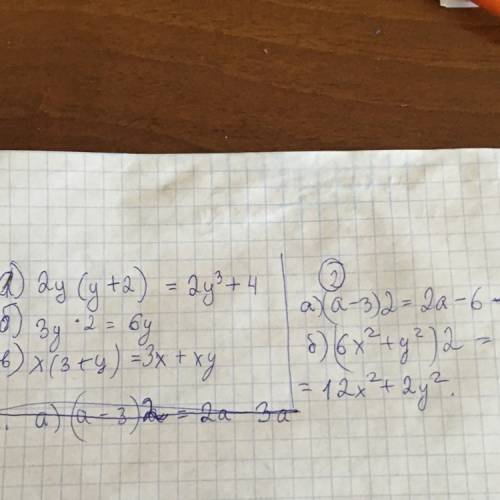 а) 2y (y+2) = 2y³+4
б) 3y · 2 = 6y
в) x(3+y) = 3x + xy
а) (a-3)2 = 2a 3a
②
а) (a-3)2 = 2a-6
б) (6x²+y²)2 =
= 12x²+2y².